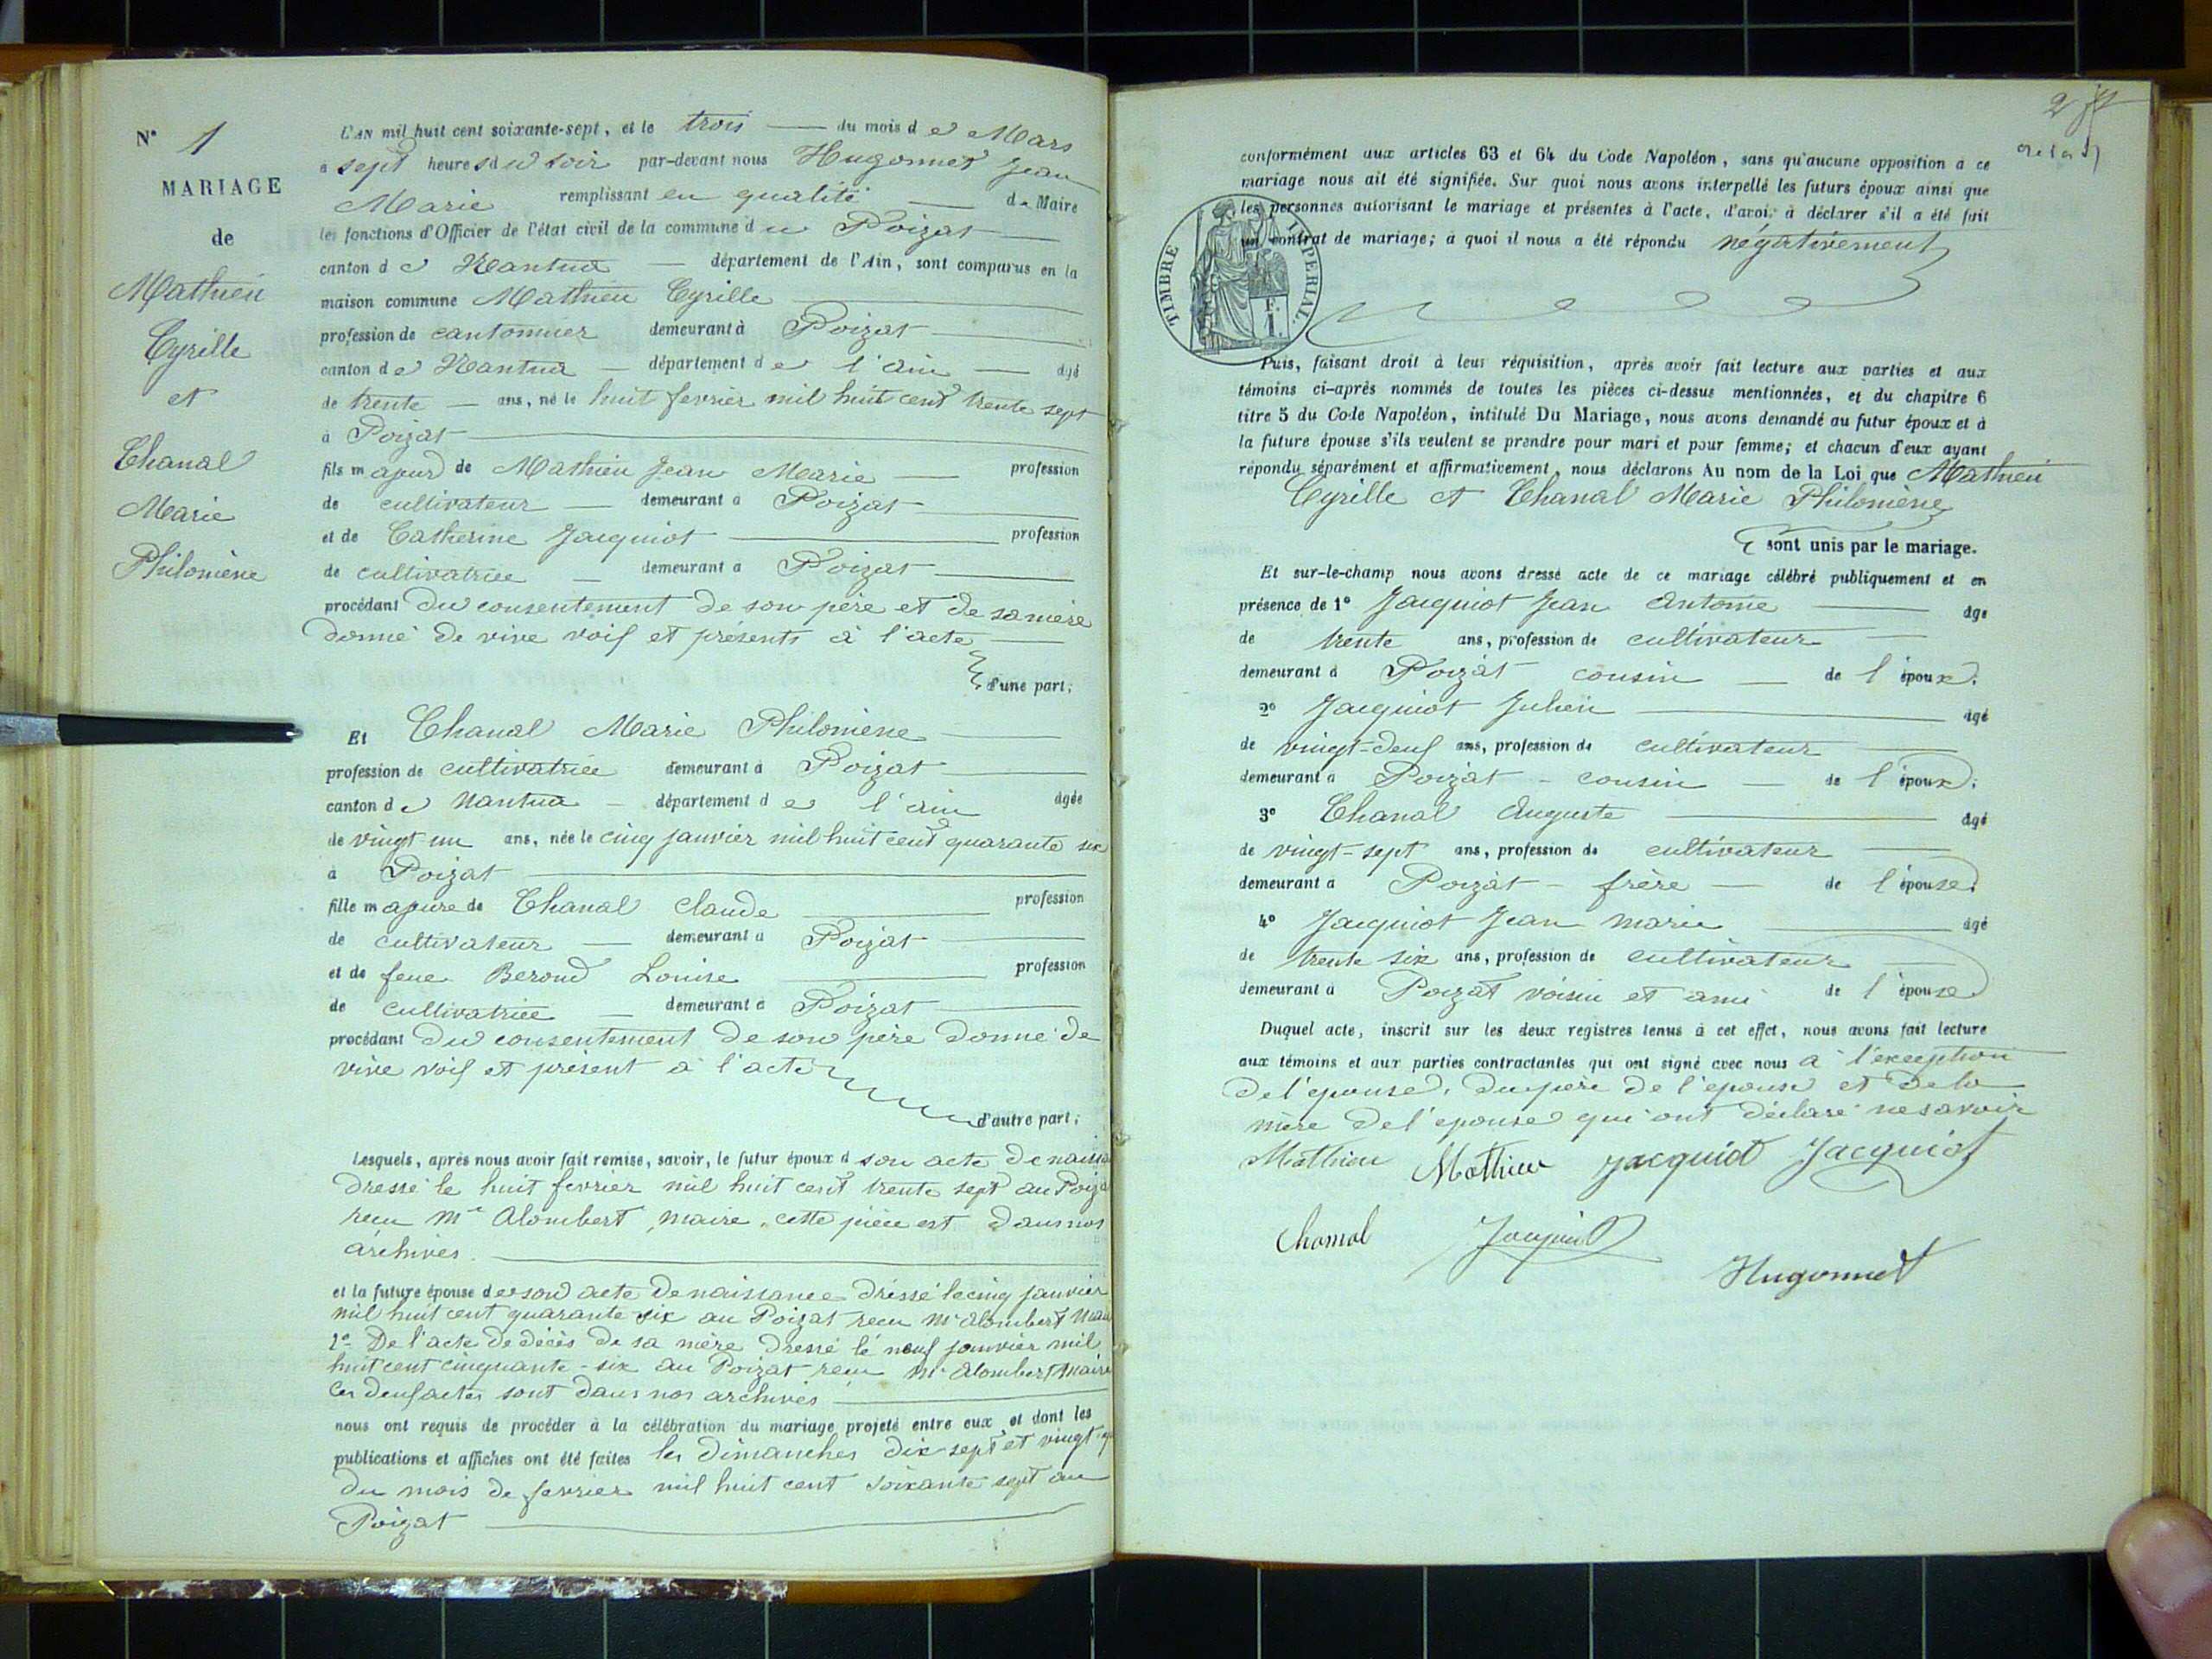 N° 1
MARIAGE
de
Mathieu
Cyrille
et
Chanal
Marie
Philomène
L'AN mil huit cent soixante-sept, et le trois du mois de Mars
a sept heures du soir par-devant nous Hugonnet Jean
Marie remplissant en qualité de Maire
les fonctions d'Officier de l'état civil de la commune du Poizat
canton de Nantua département de l'Ain, sont comparus en la
maison commune Mathieu Cyrille
profession de cantonnier demeurant à Poizat
canton de Nantua département de l'ain âgé
de trente ans, né le huit fevrier mil huit cent trente sept
à Poizat
fils majeur de Mathieu Jean Marie profession
de cultivateur demeurant à Poizat
et de Catherine Jacquiot profession
de cultivatrice demeurant à Poizat
procédant du consentement de son père et de sa mère
donné de vive voif et présents à l'acte
d'une part;
Et Chanal Marie Philomène
profession de cultivatrice demeurant à Poizat
canton de Nantua département de l'ain âgée
de vingt-un ans, née le cinq janvier mil huit cent quarante six
à Poizat
fille majeure de Chanal Claude profession
de cultivateur demeurant à Poizat
et de feue Beroud Louise profession
de cultivatrice demeurant à Poizat
procédant du consentement de son père donné de
vive voif et présent à l'acte
d'autre part;
Lesquels, après nous avoir fait remise, savoir, le futur époux d son acte de naissa
dressé le huit fevrier mil huit cent trente sept au Poiza
reçu Mr Alombert, maire, cette pièce est dans nos
archives.
et la future épouse de son acte de naissance dressé le cinq janvier
mil huit cent quarante six au Poizat reçu Mr Alombert Mair
2° De l'acte de décès de sa mère dressé le neuf janvier mil
huit cent cinquante-six au Poizat reçu Mr Alombert Maire
Ces deuf actes sont dans nos archives
nous ont requis de procéder à la célébration du mariage projeté entre eux et dont les
publications et affiches ont été faites les dimanches dix-sept et vingt-q
du mois de fevrier mil huit cent soixante sept au
Poizat
2
conformément aux articles 63 et 64 du Code Napoléon, sans qu'aucune opposition à ce
mariage nous ait été signifiée. Sur quoi nous avons interpellé les futurs époux ainsi que
les personnes autorisant le mariage et présentes à l'acte, d'avoir à déclarer s'il a été fait
un contrat de mariage; à quoi il nous a été répondu négativement
TIMBRE IMPERIAL.
F.
1.
Puis, faisant droit à leur réquisition, après avoir fait lecture aux parties et aux
témoins ci-après nommés de toutes les pièces ci-dessus mentionnées, et du chapitre 6
titre 5 du Code Napoléon, intitulé Du Mariage, nous avons demandé au futur époux et à
la future épouse s'ils veulent se prendre pour mari et pour femme; et chacun d'eux ayant
répondu séparément et affirmativement, nous déclarons Au nom de la Loi que Mathieu
Cyrille et Chanal Marie Philomène
sont unis par le mariage.
Et sur-le-champ nous avons dressé acte de ce mariage célébré publiquement et en
présence de 1° Jacquiot Jean Antoine âgé
de trente ans, profession de cultivateur
demeurant à Poizat cousin de l'époux.
2° Jacquiot Julien âgé
de vingt-deuf ans, profession de cultivateur
demeurant à Poizat - cousin de l'époux;
3° Chanal Auguste âgé
de vingt-sept ans, profession de cultivateur
demeurant à Poizat - frère de l'épouse.
4° Jacquiot Jean Marie âgé
de trente six ans, profession de cultivateur
demeurant à Poizat voisin et ami de l'épouse
Duquel acte, inscrit sur les deux registres tenus à cet effet, nous avons fait lecture
aux témoins et aux parties contractantes qui ont signé avec nous à l'exception
de l'épouse, du père de l'épouse et de la
mère de l'epouse qui ont déclaré ne savoir
Mathieu Mathieu Jacquiot Jacquiot
Chanal Jacquiot
Hugonnet